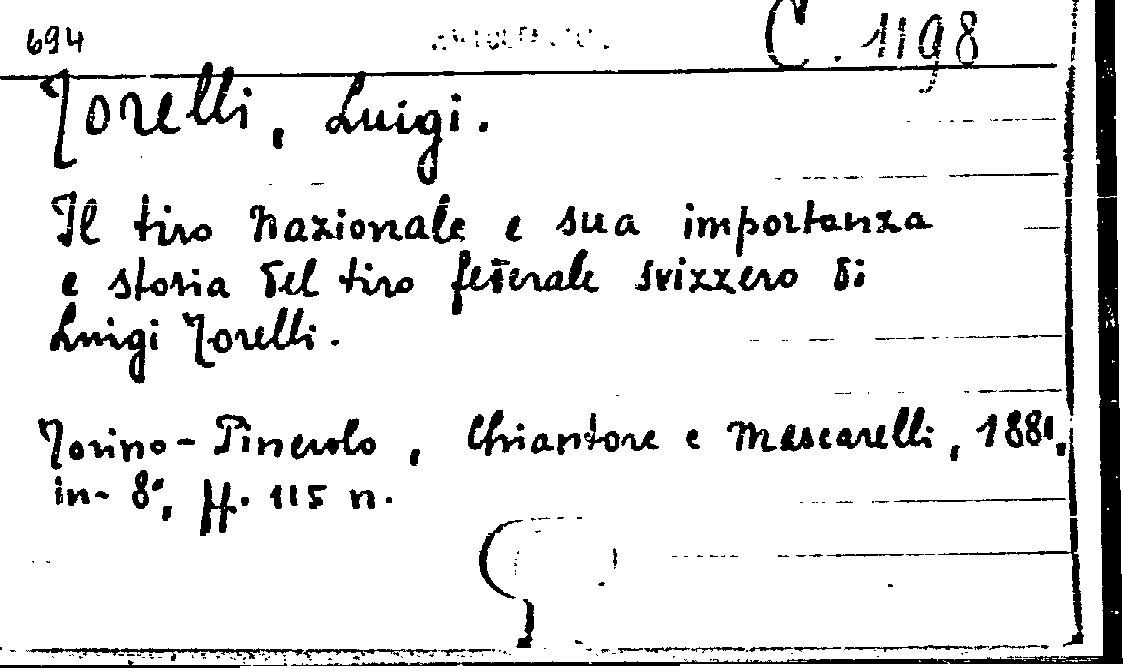 694
C. 1198
Torelli, Luigi.
Il tiro nazionale e sua importanza
e storia del tiro federale svizzero di
Luigi Torelli.
Torino-Pinerolo, Chiantore e Mascarelli, 1881,
in-8°, ff. 115 n.